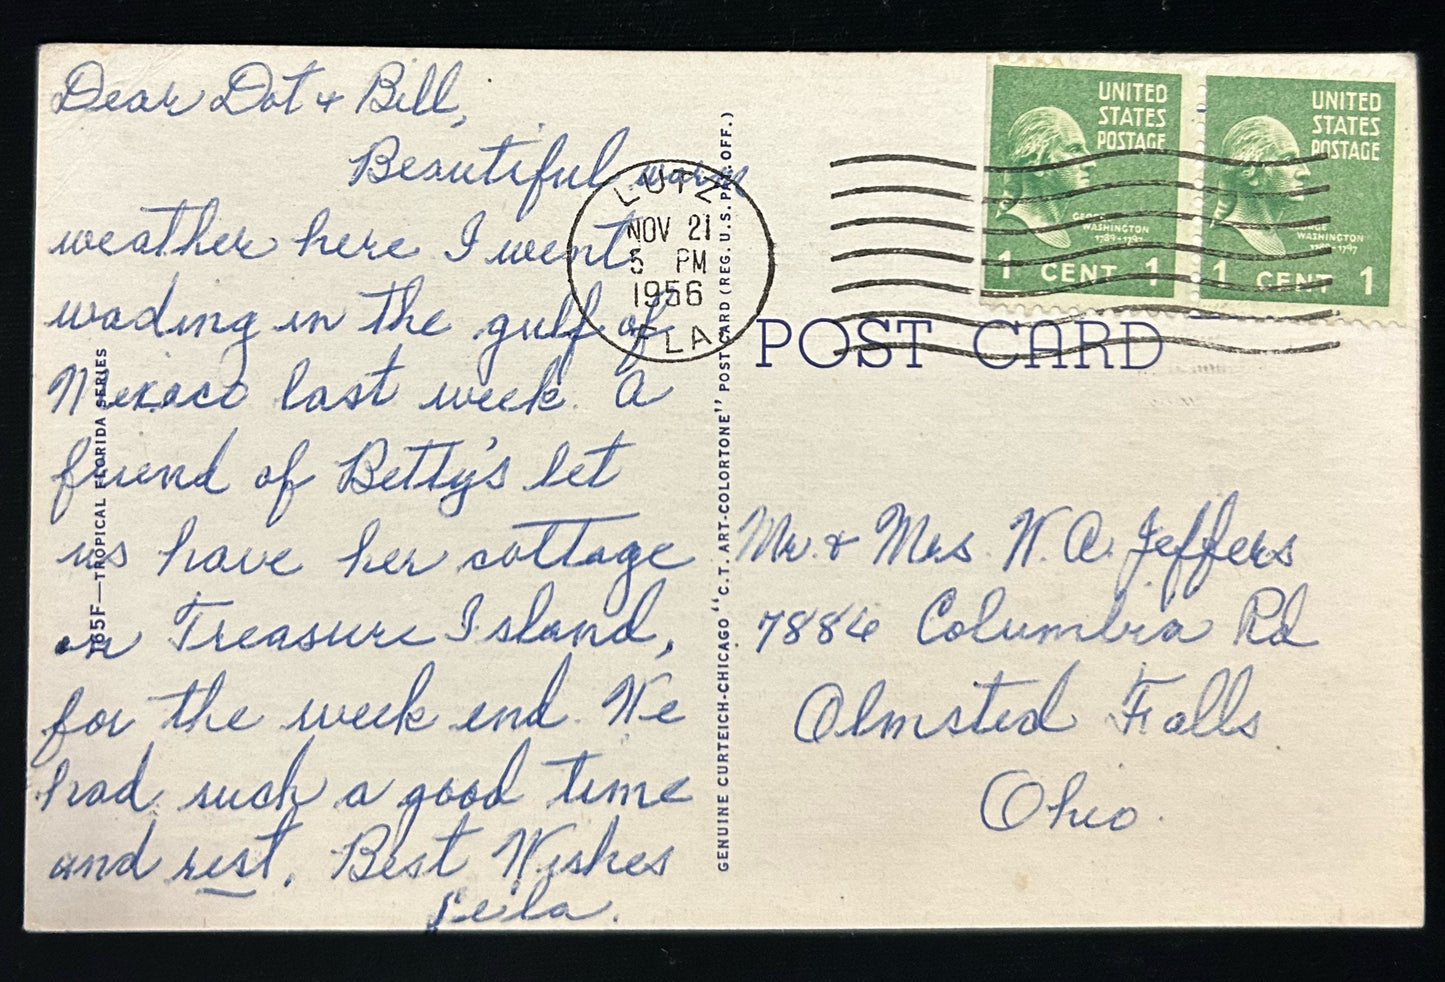 Dear Dot & Bill,
Beautiful warm
weather here I went
wading in the gulf of
Mexaco last week. A
friend of Betty's let
us have her cottage
on Treasure Island,
for the week end. We
had such a good time
and rest. Best Wishes
Leila.
165F—TROPICAL FLORIDA SERIES
LUTZ
NOV 21
5 PM
1956
FLA
GENUINE CURTEICH-CHICAGO "C.T. ART-COLORTONE" POST CARD (REG. U.S. PAT. OFF.)
UNITED
STATES
POSTAGE
GEORGE
WASHINGTON
1789-1797
1 CENT 1
UNITED
STATES
POSTAGE
GEORGE
WASHINGTON
1797
1 CENT 1
POST CARD
Mr. & Mrs. W. A. Jeffers
7884 Columbia Rd
Olmsted Falls
Ohio.